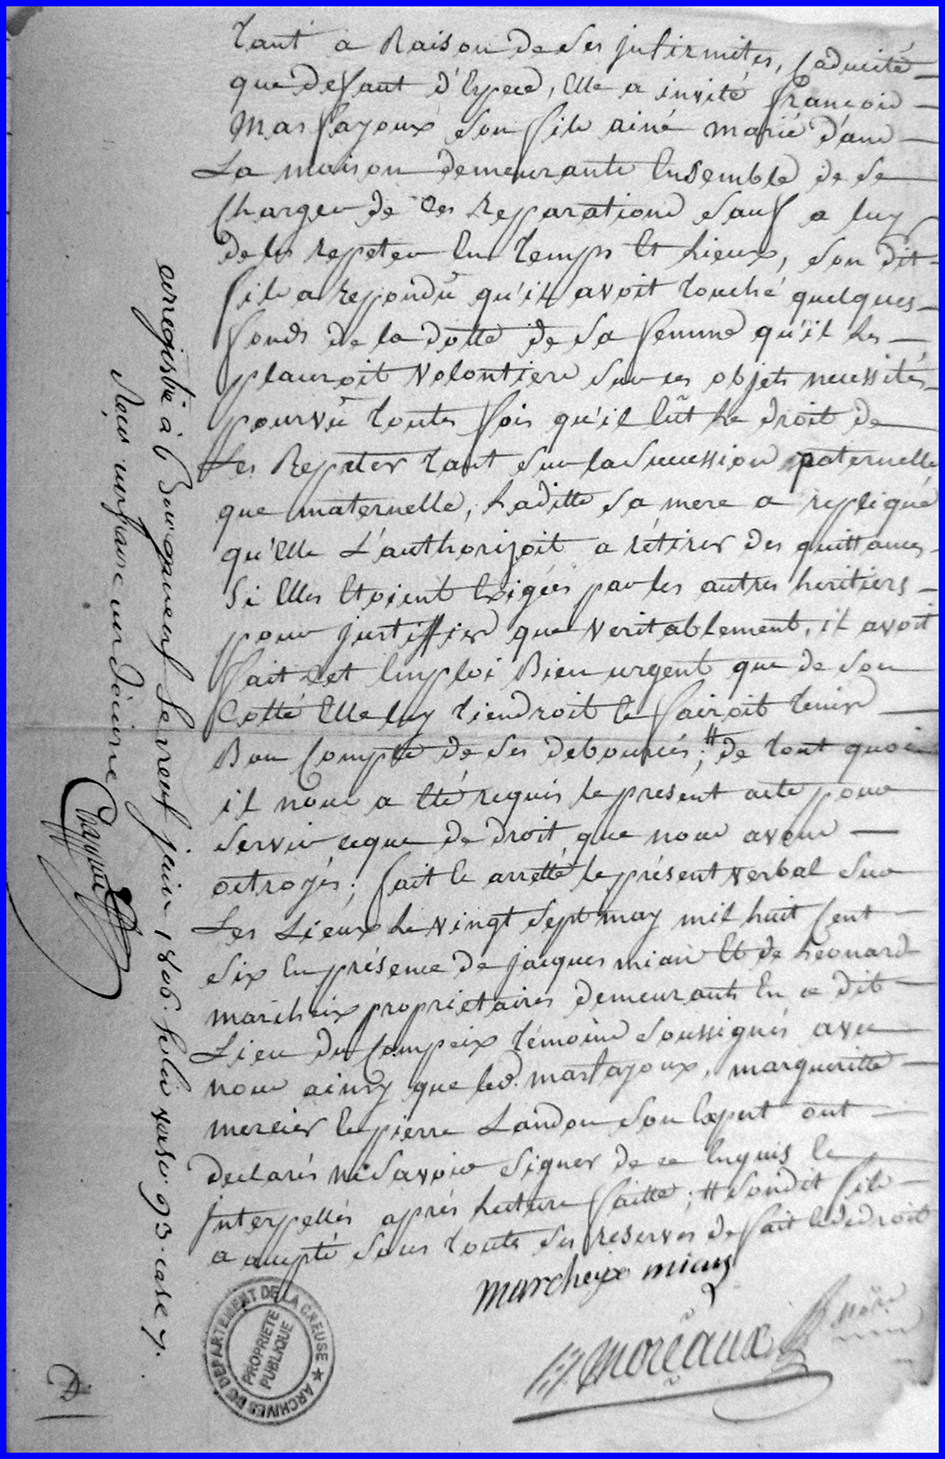 tant a Raison de ses infirmités, caducité
que deffaut d'Espece, Elle a invité françois
Masfayoux son fils ainé marié dans
La maison demeurants Ensemble de se
Charger de ces Repparations sauf a luy
de les repeter En temps Et Lieux, son dit
fils a repondû qu'il avoit touché quelques
fonds de la dotte de sa femme qu'il les
plaçroit volontiers sur ces objets necessités
pourvû toutes fois qu'il Eût Le droit de
Les Reppeter tant sur la Succession paternelle
que maternelle, Laditte sa mere a repliqué
qu'Elle L'authorizoit a retirer des quittances
Si Elles Etoient Exigées par les autres heritiers
pour justiffier que veritablement, il avoit
fait cet Employ Bien urgent que de son
Cotté Elle luy tiendroit Et fairoit tenir
Bon Compte de ses deboursés; # de tout quoi
il nous a Eté requis le present acte pour
servir ce que de droit que nous avons
octroyés; fait Et arretté le présent verbal sur
Les Lieux Le vingt sept may mil huit Cent
six En présence de jacques miais Et de Leonard
marcheix propriétaires demeurants En ce dit
Lieu du Compeix témoins soussignés avec
nous ainsy que led. masfayoux, margueritte
mercier Et pierre Landon son Expert ont
declarés ne Savoir signer de ce Enquis Et
Interpellés après Lecture faitte; # Sondit fils
a accepté sous toutes ses reserves de fait Et de droit
marcheix miais
moreaux
enregistré à Bourganeuf le neuf juin 1806. folio verso 93. case 7.
Reçu un franc un décime
ARCHIVES DU DÉPARTEMENT DE LA CREUSE
PROPRIÉTÉ
PUBLIQUE